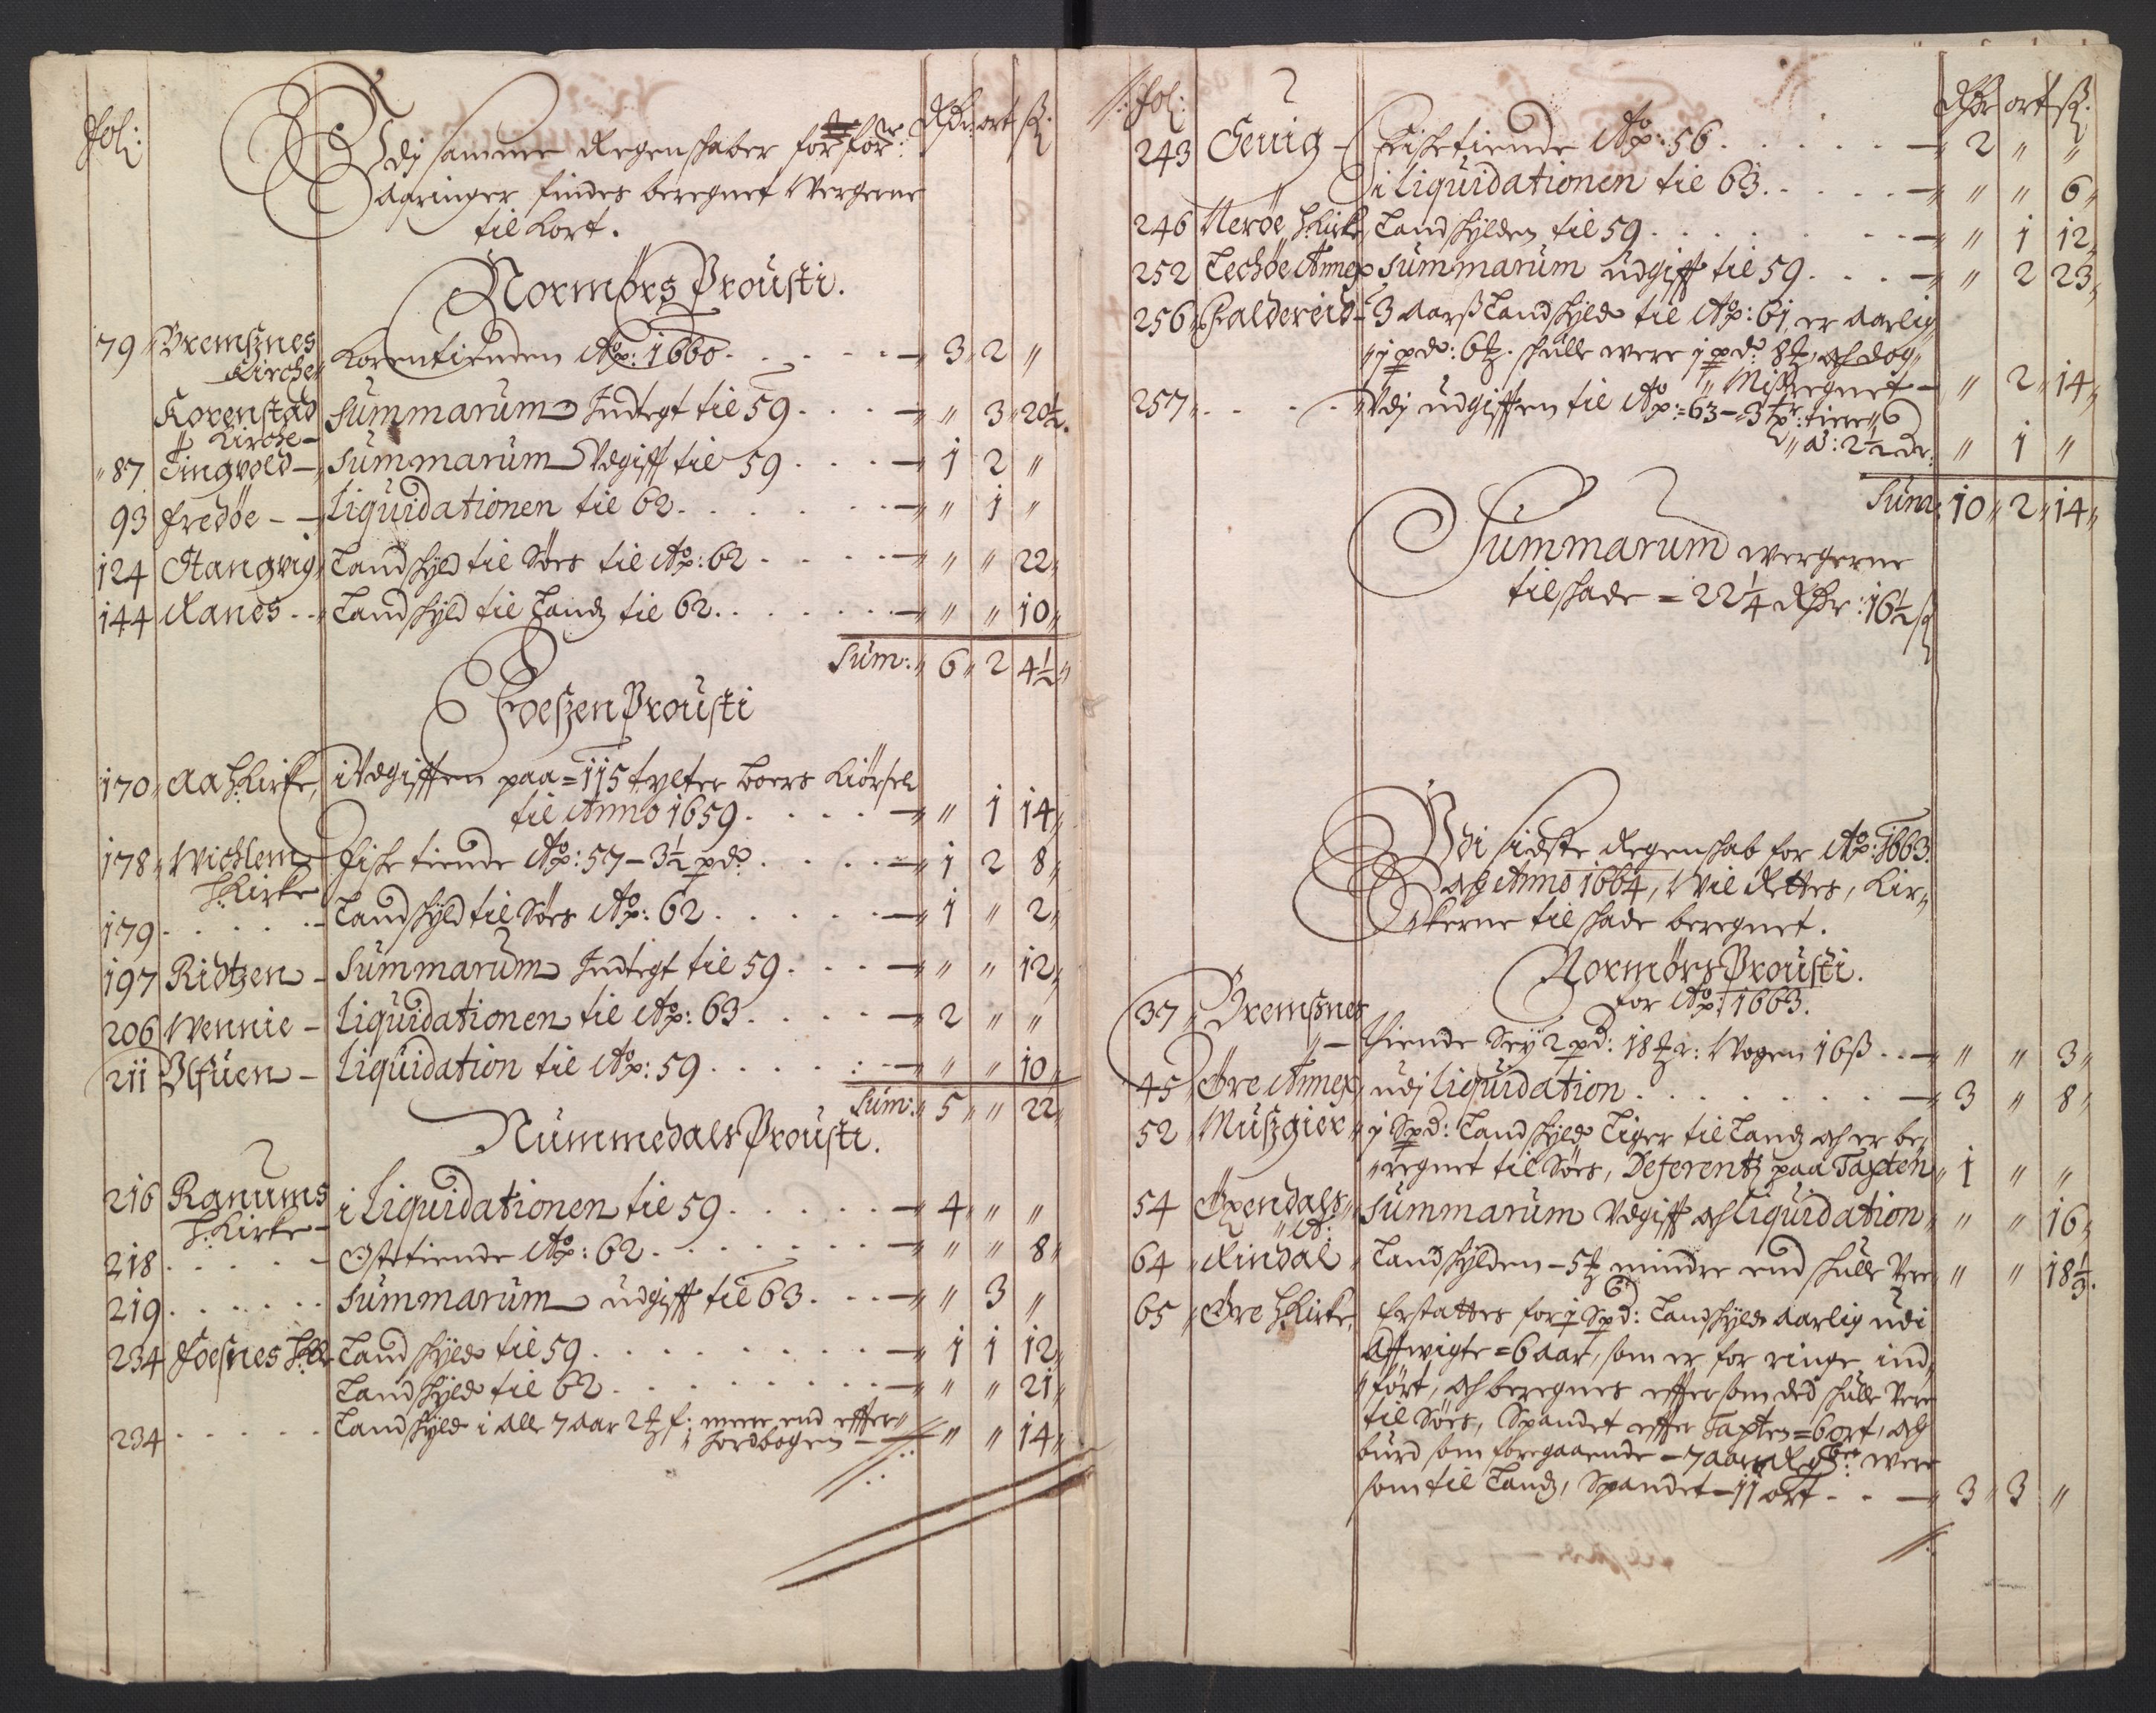 Fol: Rdr: ort ß
Udj samme Regenskaber for for:
Aaringer findes beregnet Wergerne
til Kort.
Normørs Prousti.
79 Bremsznes Korentienden Ao: 1660 - 3 2 "
Kirche
Korenstad Summarum Indtegt til 59 - " 3 20½.
Kirche
87 Tingvold - Summarum Udgifft til 59 - 1 2 "
93 Fredøe - Liquidationen til 62 - " 1 "
124 Stangvig Landskyld til Sørs til Ao: 62 - " " 22
144 Ranes - Landskyld til Landz til 62 - " " 10
Sum: 6 2 4½
Foeszen Prousti
170 Aa H.Kirke, i Udgifften paa = 115 tylter boers Kiørsel
til Anno 1659 - " 1 14
178 Wichlem Fiske tiende Ao: 57 - 3½ pd: - 1 2 8
H.Kirke
179 Landskyld til Sørs Ao: 62 - 1 " 2
197 Ridtzen - Summarum Indtegt til 59 - " " 12
206 Wennie - Liquidationen til Ao: 63 - 2 " "
211 Ulfuen - Liquidation til Ao: 59 - " " 10
Sum: 5 " 22
Nummedals Prousti.
216 Ranums i Liquidationen til 59 - 4 " "
H.Kirke -
218 Ostetiende Ao: 62 - " " 8
219 Summarum udgifft til 63 - " 3 "
234 Foesnes H.K. Landskyld til 59 - 1 1 12
Landskyld til 62 - " " 21
234 Landskyld i alle 7 Aar 2 f: mere end effter
Jordbogen - " " 14
Fol: Rdr ort ß.
243 Seuig - Fisketiende Ao: 56 - 2 " "
" i Liquidationen til 63 - " " 6
246 Nerøe H.Kirke Landskylden til 59 - " 1 12
252 Lechøe Annex Summarum udgifft til 59 - " 2 23
256 Haldereid - 3 Aars Landskyld til Ao: 61, er Aarlig
1 pd: 6. skulle were 1 pd: 8, och dog
Misregnet - " 2 14
257 Udj udgifften til Ao: 63 - 3 tr: tiere
a: 2½ dr: " 1 "
Sum: 10 2 14
Summarum wergerne
tilskade = 22¼ Rdr: 16½ ß
Udi sidste Regenskab for Ao: 1663.
och Anno 1664, Wil Rettes, Kir-
kerne til skade beregnet.
Normørs Prousti.
for Ao: 1663.
37 Bremsznes
" - tiende Sey 2 pd: 18 r: Wogen 16 ß - " " 3
45 Øre Annex, udj Liquidation - 3 " 8
52 Muszgier 1 Spd: Landskyld Liger til Landz och er be-
regnet til Sørs, Deferentz paa Taxten 1 " "
54 Øxendals Summarum Udgifft och Liquidation " " 16
A:
64 Rindal Landskylden - 5 mindre end skulle Were " " 18⅓.
65 Øre H.Kirke, Erstattes for 1 Spd: Landskyld Aarlig udi
Affwigte = 6 aar, som er for ringe ind
ført, och beregnes effter som ded skulle Were
til Sørs, Spandet effter Taxten = 6 ort, och
burd som foregaaende - 7 aar were
som til Landz, Spandet - 11 ort - 3 3 "